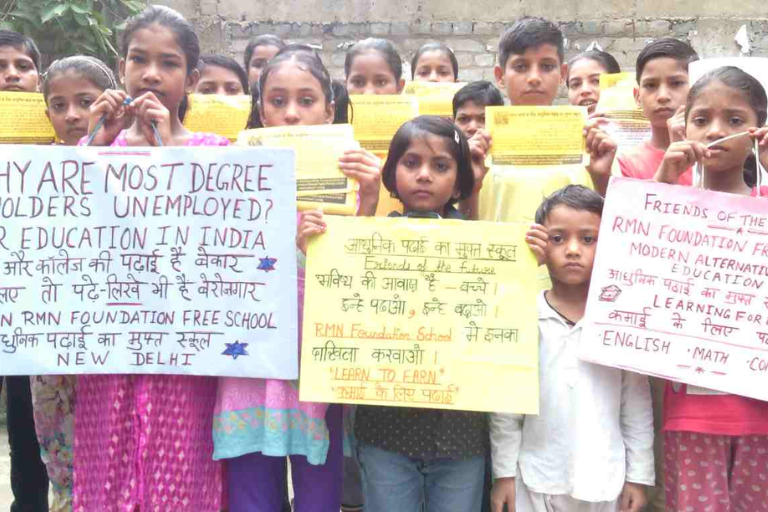 HY ARE MOST DEGREE
HOLDERS UNEMPLOYED?
R EDUCATION IN INDIA
और कॉलेज की पढ़ाई है बेकार
लिए तो पढ़े-लिखे भी है बेरोनगार
N RMN FOUNDATION FREE SCHOOL
धुनिक पढ़ाई का मुफ्त स्कूल
NEW DELHI
आधुनिक पढ़ाई का मुफ्त स्कूल
Friends of the Future
भविष्य की आवाज़ है - बच्चे।
इन्हे पढ़ाओ, इन्हे बढ़ाओ।
RMN Foundation School में इनका
दाखिला करवाओ।
"LEARN TO EARN"
"कमाई के लिए पढ़ाई"
FRIENDS OF THE
RMN FOUNDATION FR
MODERN ALTERNATI
EDUCATION
आधुनिक पढ़ाई का मुफ्त स्
LEARNING FOR
कमाई के लिए प
·ENGLISH ·MATH ·CO